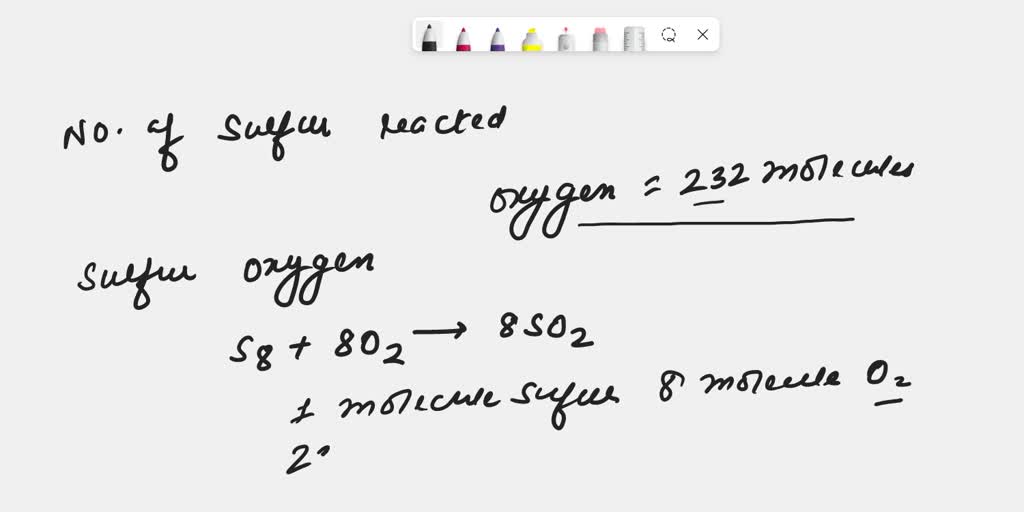 No. of Sulfur reacted
oxygen = 232 molecules
Sulfur oxygen
S8 + 8O2 → 8SO2
1 molecule sulfur 8 molecule O2
2